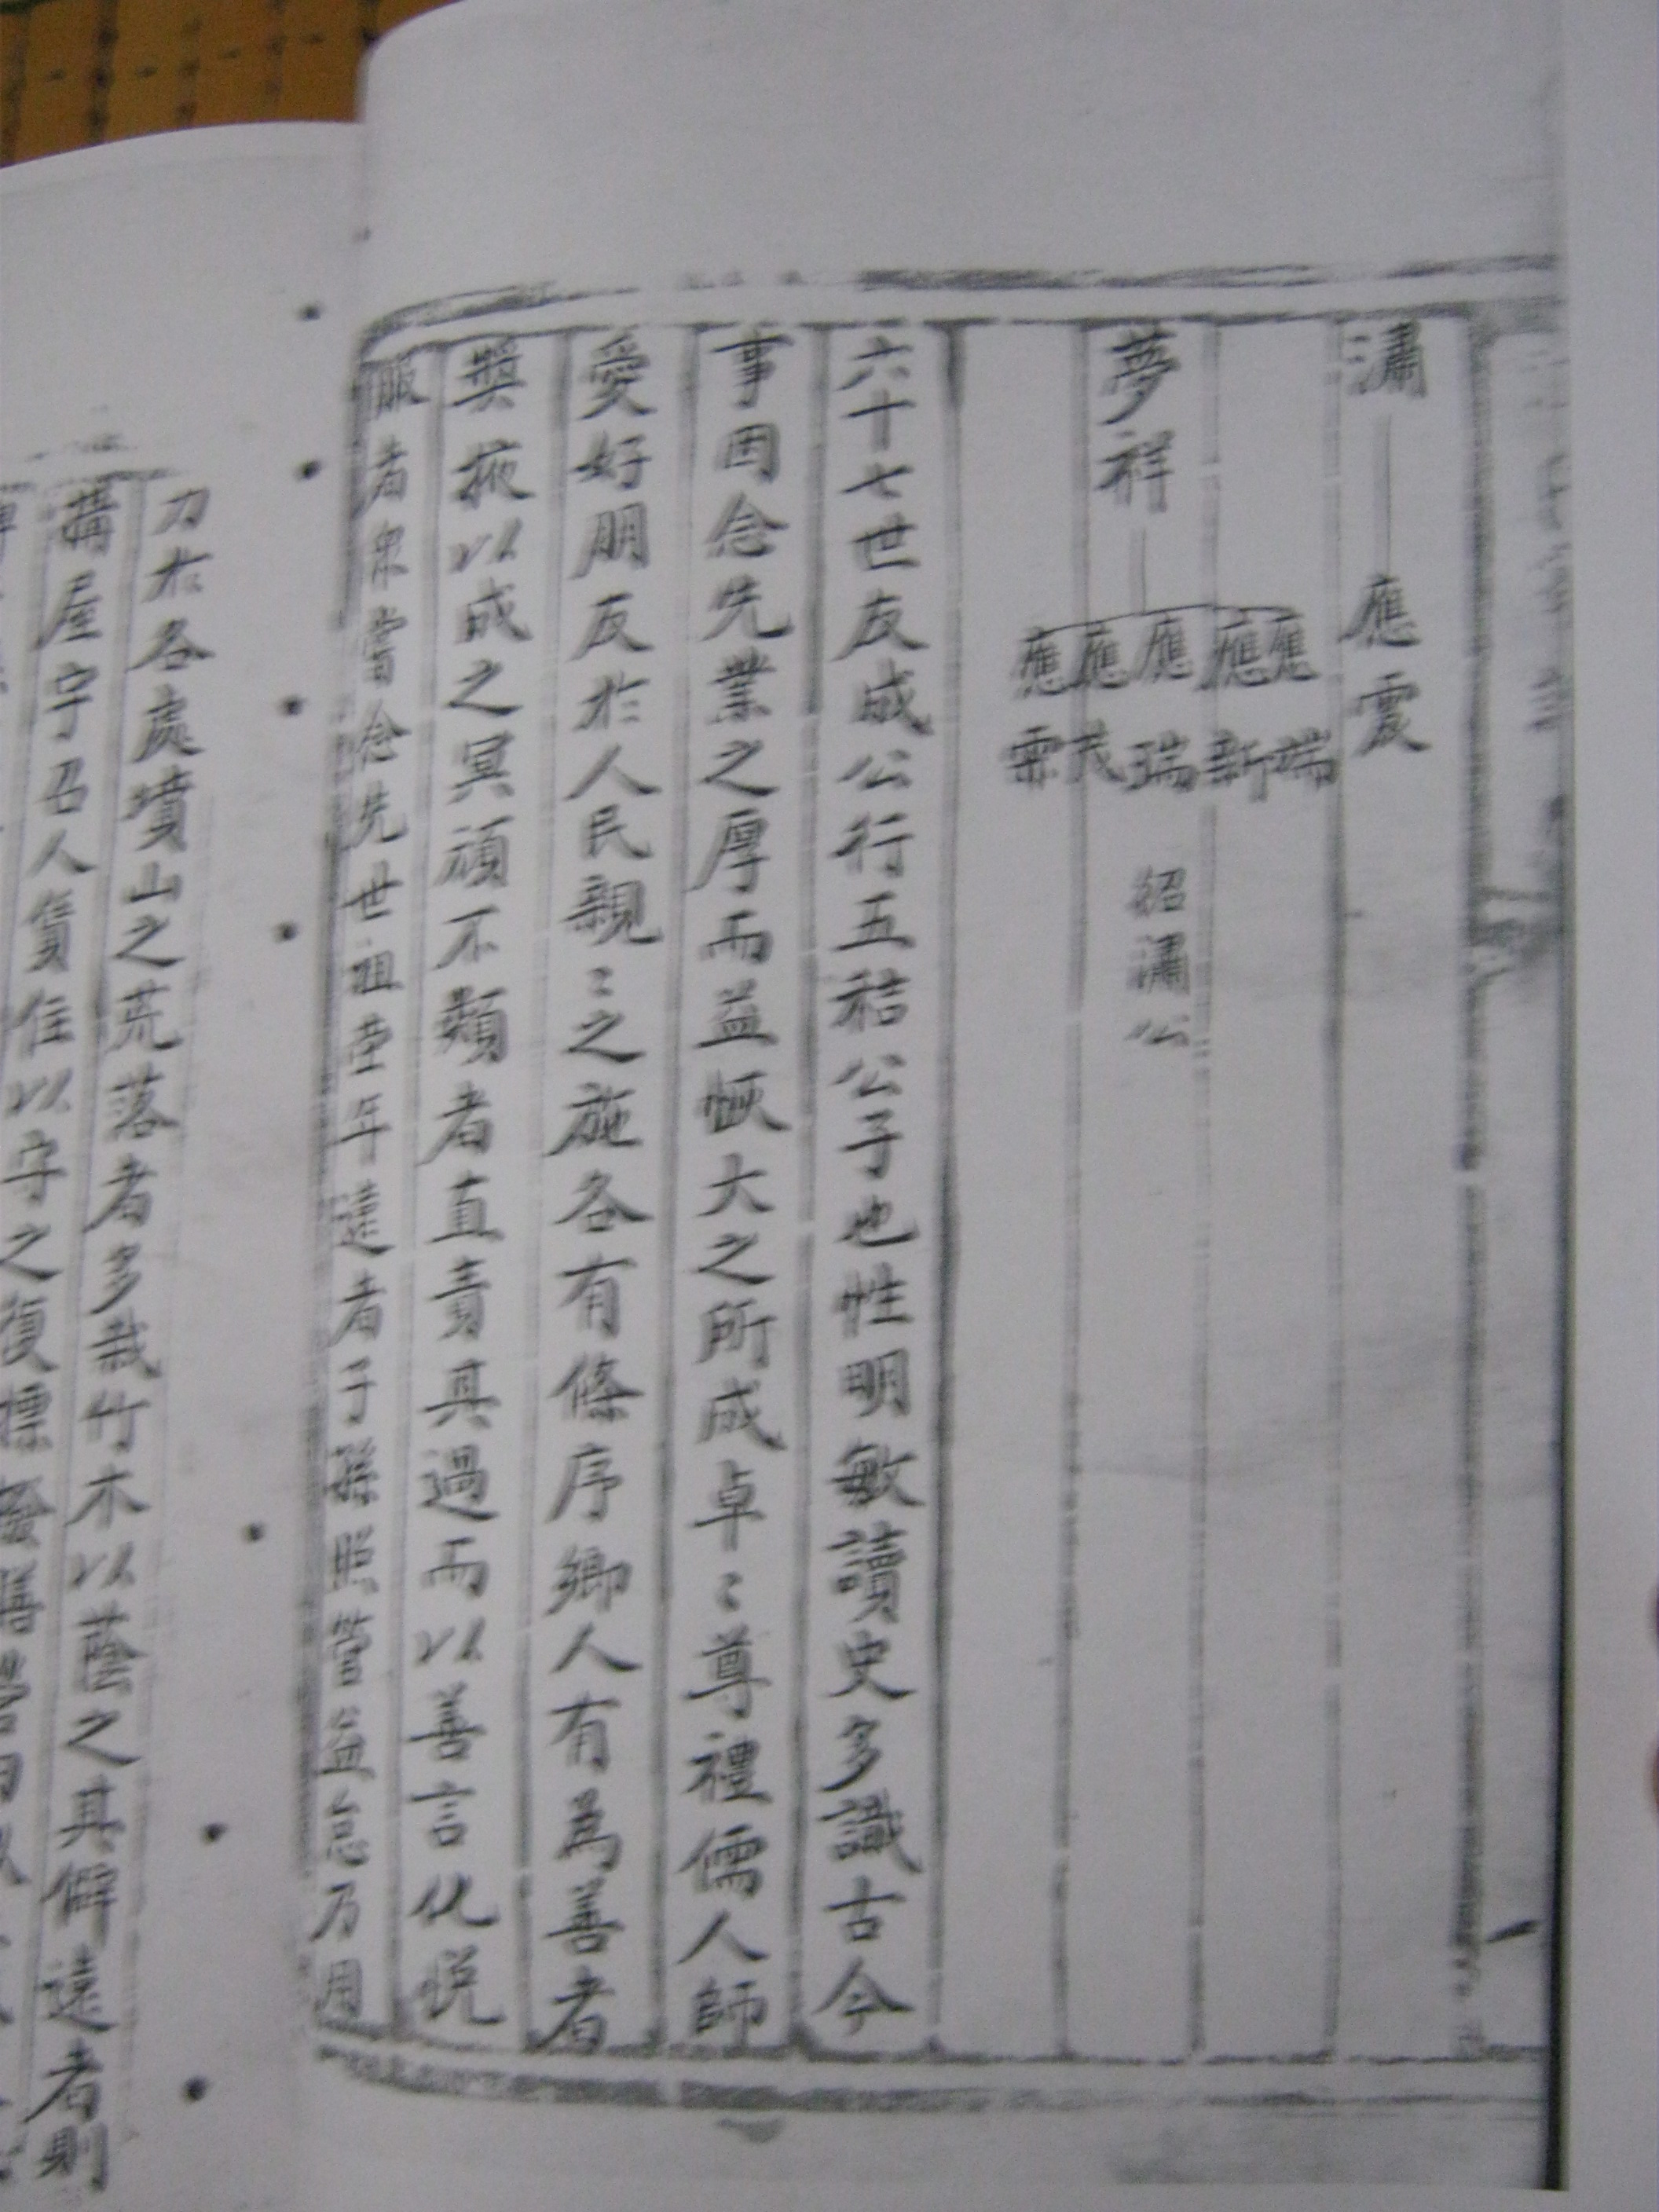 瀟 應震
應端
應新
夢祥 應瑞 紹瀟公
應茂
應霖
六十七世友成公行五秸公子也性明敏讀史多識古今
事因念先業之厚而益恢大之所成卓〻尊禮儒人師
愛好朋友於人民親〻之施各有條序鄉人有為善者
獎掖以成之冥頑不類者直責其過而以善言化悅
服者眾嘗念先世祖塋年遠者子孫照管益怠乃用
力於各處墳山之荒落者多栽竹木以蔭之其僻遠者則
構屋宇召人賃住以守之復標